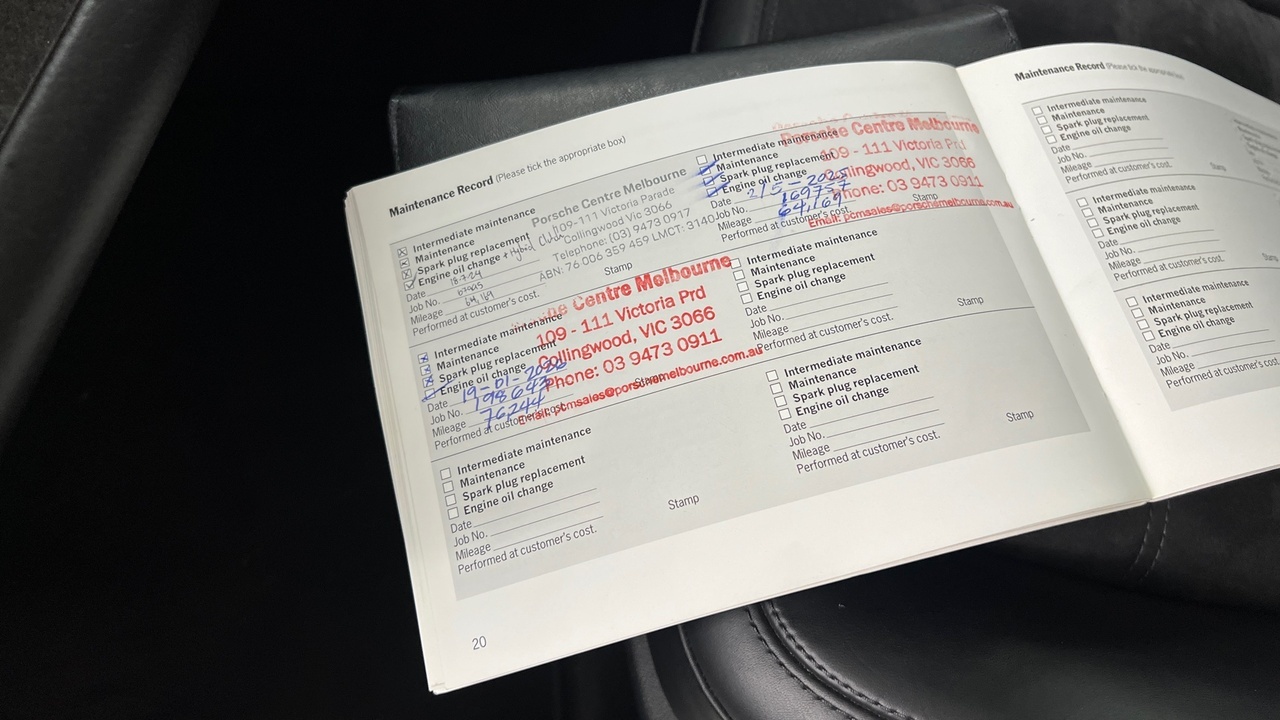 Maintenance Record (Please tick the appropriate box)
Intermediate maintenance
Maintenance
Spark plug replacement
Engine oil change + Hybrid
Date 18-7-24
Job No.
Mileage 64,169
Performed at customer's cost.
Porsche Centre Melbourne
109-111 Victoria Parade
Collingwood Vic 3066
Telephone: (03) 9473 0917
ABN: 76 006 359 459 LMCT: 3140
Stamp
Intermediate maintenance
Maintenance
Spark plug replacement
Engine oil change
Date 2/5-2025
Job No. 169757
Mileage 64,169
Performed at customer's cost.
Porsche Centre Melbourne
109 - 111 Victoria Prd
Collingwood, VIC 3066
Phone: 03 9473 0911
Email: pcmsales@porschemelbourne.com.au
Stamp
Intermediate maintenance
Maintenance
Spark plug replacement
Engine oil change
Date 19-01-2026
Job No. 198643
Mileage 76244
Performed at customer's cost.
Centre Melbourne
109 - 111 Victoria Prd
Collingwood, VIC 3066
Phone: 03 9473 0911
Email: pcmsales@porschemelbourne.com.au
Stamp
Intermediate maintenance
Maintenance
Spark plug replacement
Engine oil change
Date
Job No.
Mileage
Performed at customer's cost.
Stamp
Intermediate maintenance
Maintenance
Spark plug replacement
Engine oil change
Date
Job No.
Mileage
Performed at customer's cost.
Stamp
Intermediate maintenance
Maintenance
Spark plug replacement
Engine oil change
Date
Job No.
Mileage
Performed at customer's cost.
Stamp
20
Maintenance Record (Please tick the appropriate box)
Intermediate maintenance
Maintenance
Spark plug replacement
Engine oil change
Date
Job No.
Mileage
Performed at customer's cost.
Stamp
Intermediate maintenance
Maintenance
Spark plug replacement
Engine oil change
Date
Job No.
Mileage
Performed at customer's cost.
Stamp
Intermediate maintenance
Maintenance
Spark plug replacement
Engine oil change
Date
Job No.
Mileage
Performed at customer's cost.